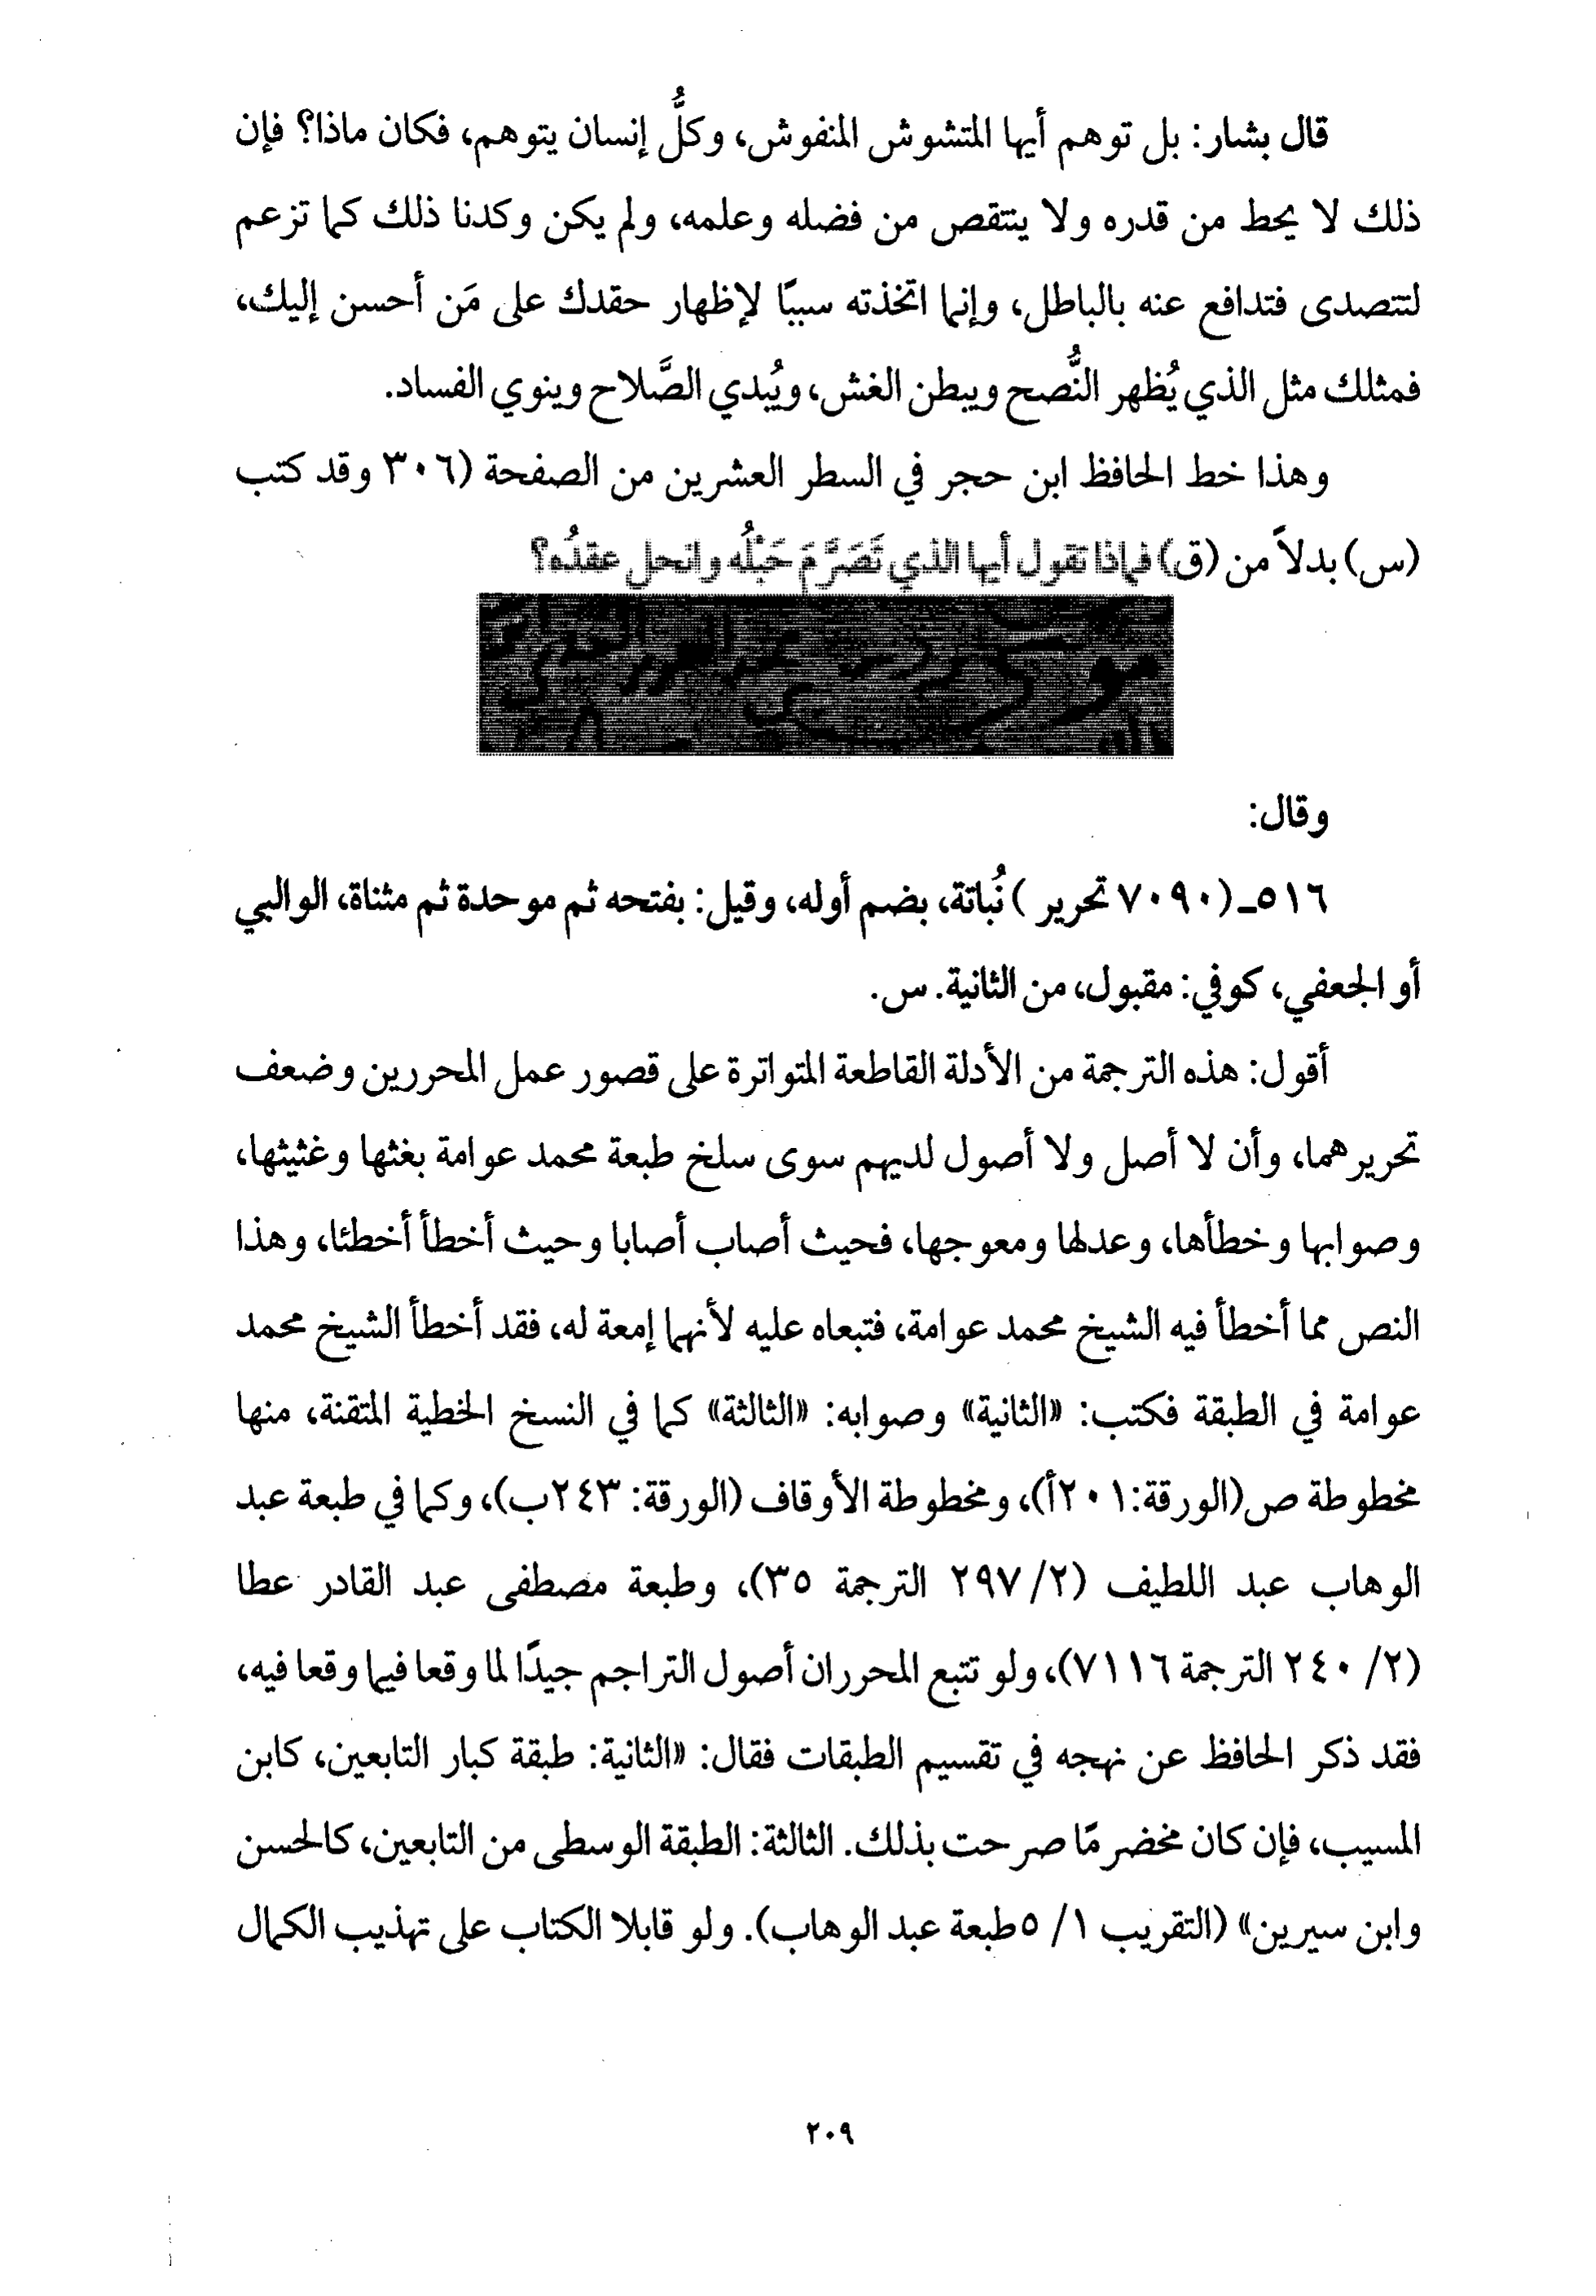 قال بشار: بل توهم أيها المتشوش المنفوش، وكلُّ إنسان يتوهم، فكان ماذا؟ فإن
ذلك لا يحط من قدره ولا ينتقص من فضله وعلمه، ولم يكن وكدنا ذلك كما تزعم
لتتصدى فتدافع عنه بالباطل، وإنما اتخذته سببًا لإظهار حقدك على مَن أحسن إليك،
فمثلك مثل الذي يُظهر النُّصح ويبطن الغش، ويُبدي الصَّلاح وينوي الفساد.
وهذا خط الحافظ ابن حجر في السطر العشرين من الصفحة (٣٠٦ وقد كتب
(س) بدلاً من (ق) فماذا تقول أيها الذي تَصَرَّمَ حَبْلُه وانحل عقدُه؟
وقال:
٥١٦ـ (٧٠٩٠ تحرير) نُباتة، بضم أوله، وقيل: بفتحه ثم موحدة ثم مثناة، الوالبي
أو الجعفي، كوفي: مقبول، من الثانية. س.
أقول: هذه الترجمة من الأدلة القاطعة المتواترة على قصور عمل المحررين وضعف
تحريرهما، وأن لا أصل ولا أصول لديهم سوى سلخ طبعة محمد عوامة بغثها وغثيثها،
وصوابها وخطأها، وعدلها ومعوجها، فحيث أصاب أصابا وحيث أخطأ أخطئا، وهذا
النص مما أخطأ فيه الشيخ محمد عوامة، فتبعاه عليه لأنهما إمعة له، فقد أخطأ الشيخ محمد
عوامة في الطبقة فكتب: «الثانية» وصوابه: «الثالثة» كما في النسخ الخطية المتقنة، منها
مخطوطة ص (الورقة: ٢٠١أ)، ومخطوطة الأوقاف (الورقة: ٢٤٣ب)، وكما في طبعة عبد
الوهاب عبد اللطيف (٢/ ٢٩٧ الترجمة ٣٥)، وطبعة مصطفى عبد القادر عطا
(٢/ ٢٤٠ الترجمة ٧١١٦)، ولو تتبع المحرران أصول التراجم جيدًا لما وقعا فيما وقعا فيه،
فقد ذكر الحافظ عن نهجه في تقسيم الطبقات فقال: «الثانية: طبقة كبار التابعين، كابن
المسيب، فإن كان مخضرمًا صرحت بذلك. الثالثة: الطبقة الوسطى من التابعين، كالحسن
وابن سيرين» (التقريب ١/ ٥ طبعة عبد الوهاب). ولو قابلا الكتاب على تهذيب الكمال
٢٠٩